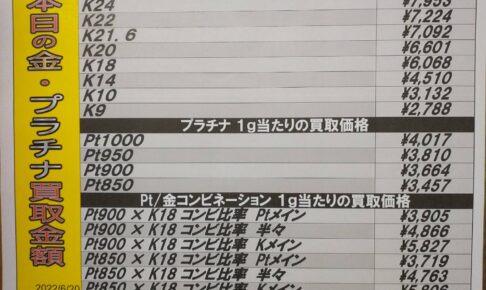 本日の金・プラチナ買取金額
K24 ¥7,953
K22 ¥7,224
K21.6 ¥7,092
K20 ¥6,601
K18 ¥6,068
K14 ¥4,510
K10 ¥3,132
K9 ¥2,788
プラチナ 1g当たりの買取価格
Pt1000 ¥4,017
Pt950 ¥3,810
Pt900 ¥3,664
Pt850 ¥3,457
Pt/金コンビネーション 1g当たりの買取価格
Pt900 × K18 コンビ比率 Ptメイン ¥3,905
Pt900 × K18 コンビ比率 半々 ¥4,866
Pt900 × K18 コンビ比率 Kメイン ¥5,827
Pt850 × K18 コンビ比率 Ptメイン ¥3,719
Pt850 × K18 コンビ比率 半々 ¥4,763
Pt850 × K18 コンビ比率 Kメイン
2022/6/20